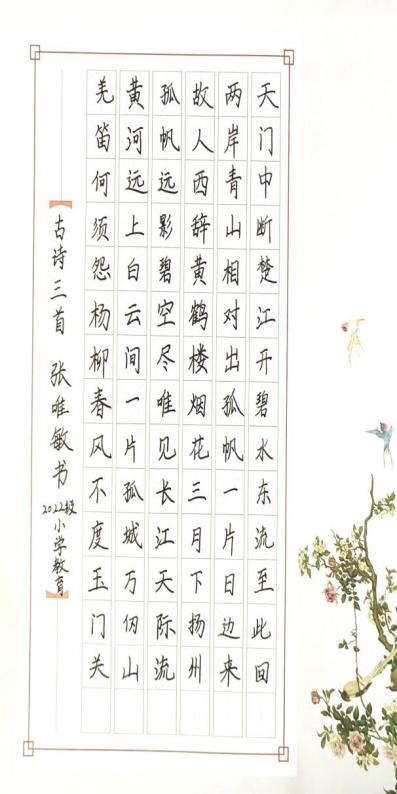 天门中断楚江开碧水东流至此回
两岸青山相对出孤帆一片日边来
故人西辞黄鹤楼烟花三月下扬州
孤帆远影碧空尽唯见长江天际流
黄河远上白云间一片孤城万仞山
羌笛何须怨杨柳春风不度玉门关
古诗三首 张唯敏书
2022级小学教育